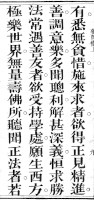 有悉無貪惜施來求者欲得正見精進
善調意樂多聞聰利解甚深義恒求勝
法常遇善友者欲受持學處願生西方
極樂世界無量壽佛所聽聞正法者若